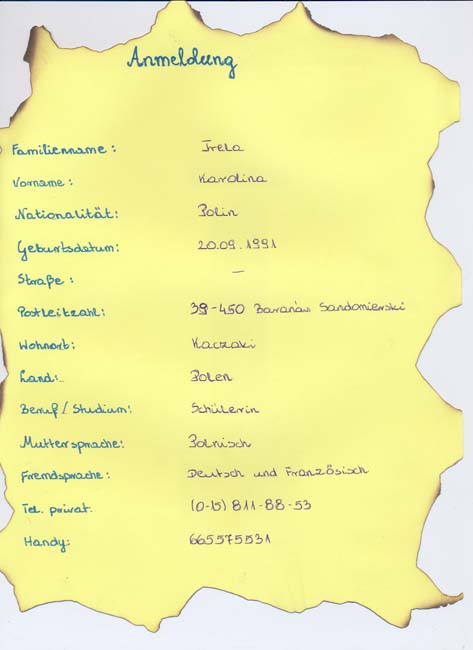 Anmeldung
Familienname: Trela
Vorname: Karolina
Nationalität: Polin
Geburtsdatum: 20.09.1991
Straße: —
Postleitzahl: 39-450 Baranów Sandomierski
Wohnort: Kaczaki
Land: Polen
Beruf/Studium: Schülerin
Muttersprache: Polnisch
Fremdsprache: Deutsch und Französisch
Tel. privat. (0-15) 811-88-53
Handy: 665575531